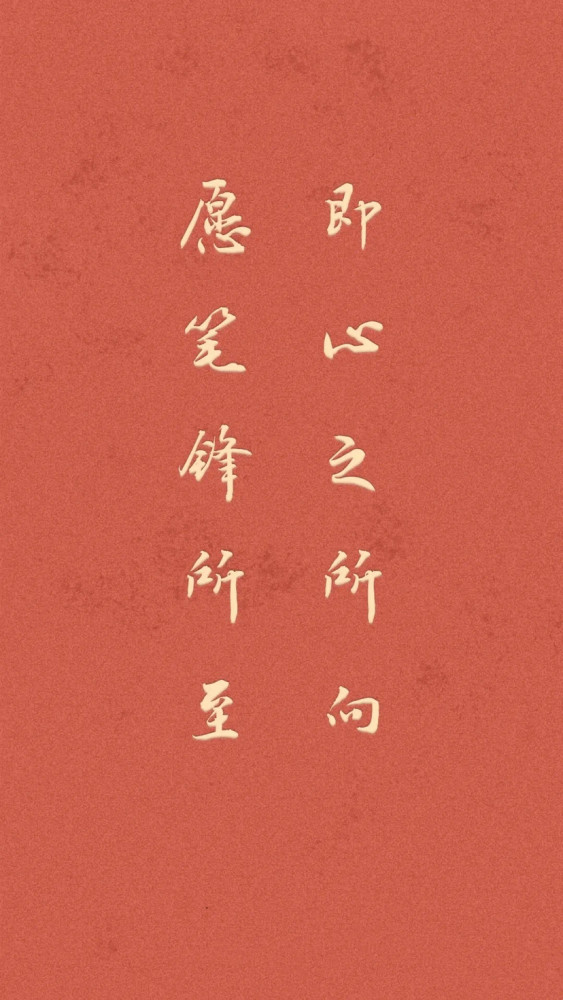 愿笔锋所至
即心之所向